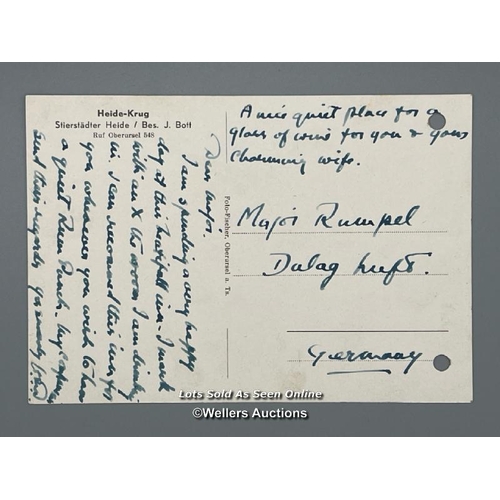 Heide-Krug
Stierstädter Heide / Bes. J. Bott
Ruf Oberursel 548
Dear Major.
I am spending a very happy
day at this beautiful inn - I mark
with an X the room I am drinking
in. I can recommend this inn for
you whenever you wish to have
a quiet Rum Punch. My
send their regards yours
Foto-Fischer, Oberursel a. Ts.
A nice quiet place for a
glass of wine for you & your
Charming wife.
Major Rumpel
Dulag Luft.
Germany
Lots Sold As Seen Online
©Wellers Auctions